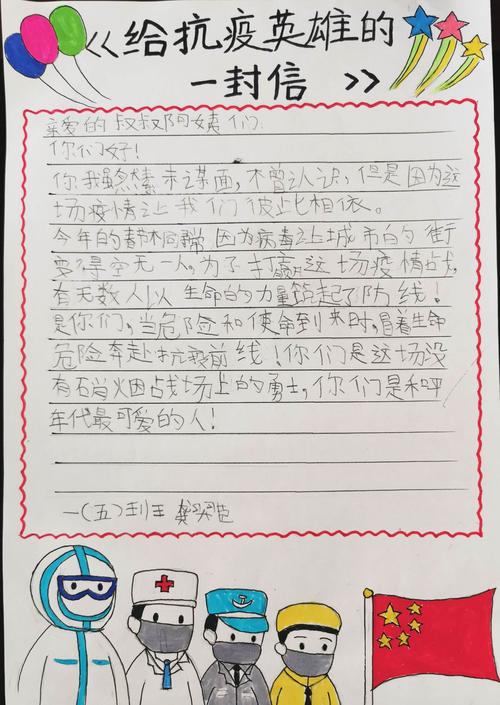 《给抗疫英雄的
一封信》
亲爱的叔叔阿姨们:
你们好!
你我虽然素未谋面,不曾认识,但是因为这
场疫情让我们彼此相依。
今年的春节不同寻常,因为病毒让城市的街
变得空无一人,为了打赢这场疫情战,
有无数人以生命的力量筑起了防线!
是你们,当危险和使命到来时,冒着生命
危险奔赴抗疫前线!你们是这场没
有硝烟战场上的勇士,你们是和平
年代最可爱的人!
一(五)班 龚